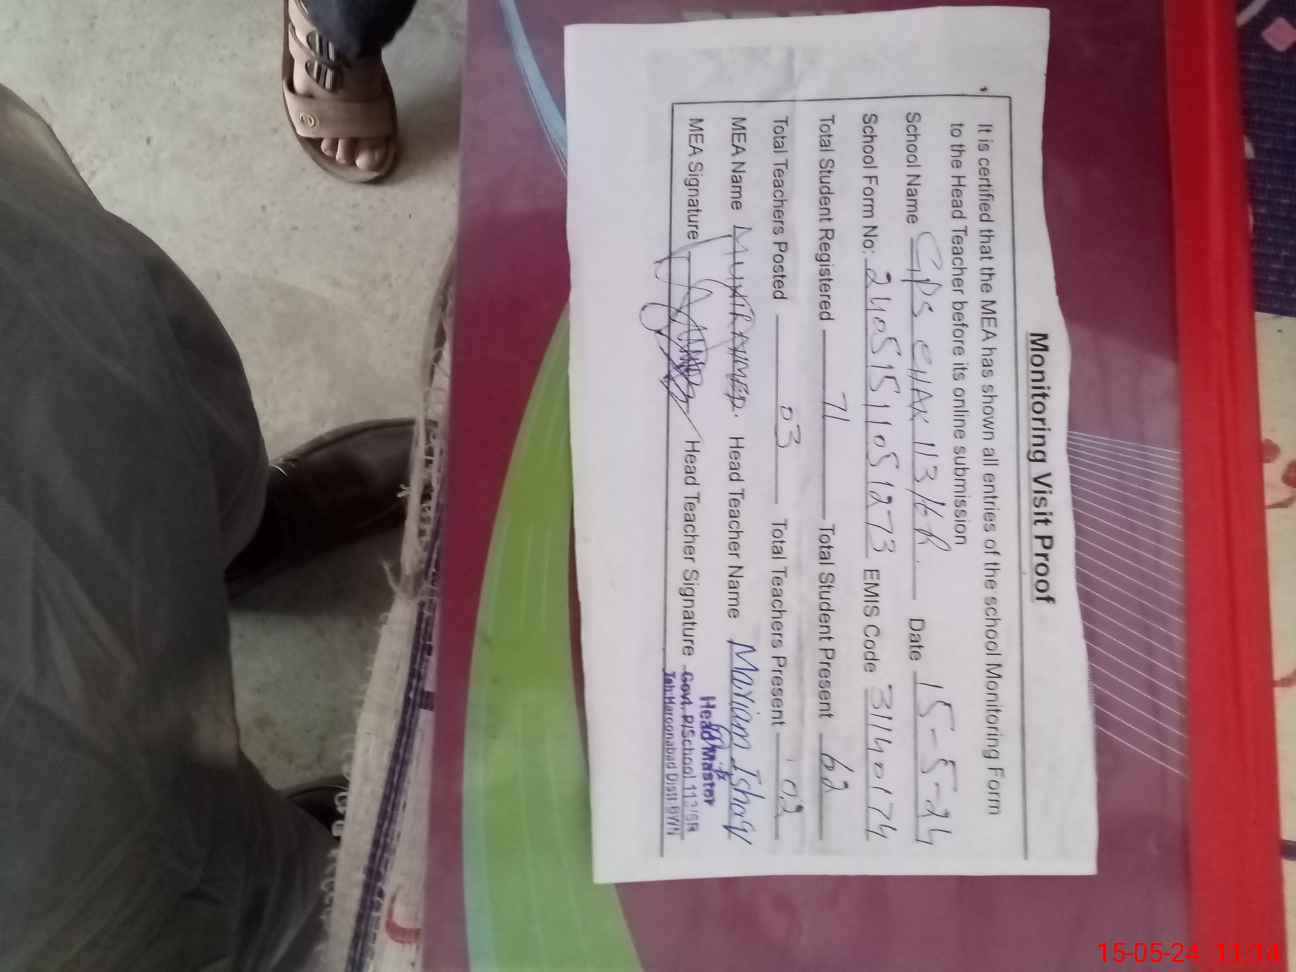 Monitoring Visit Proof
It is certified that the MEA has shown all entries of the school Monitoring Form
to the Head Teacher before its online submission
School Name GPS CHAK 113/6R Date 15-5-24
School Form No: 24051511051273 EMIS Code 31140174
Total Student Registered 71 Total Student Present 62
Total Teachers Posted 03 Total Teachers Present 02
MEA Name AHMED. Head Teacher Name Mariam Ishaq
MEA Signature Head Teacher Signature
Head Master
Govt. P/School 113/6R
Teh: Haroonabad Distt BWN
15-05-24 11:14